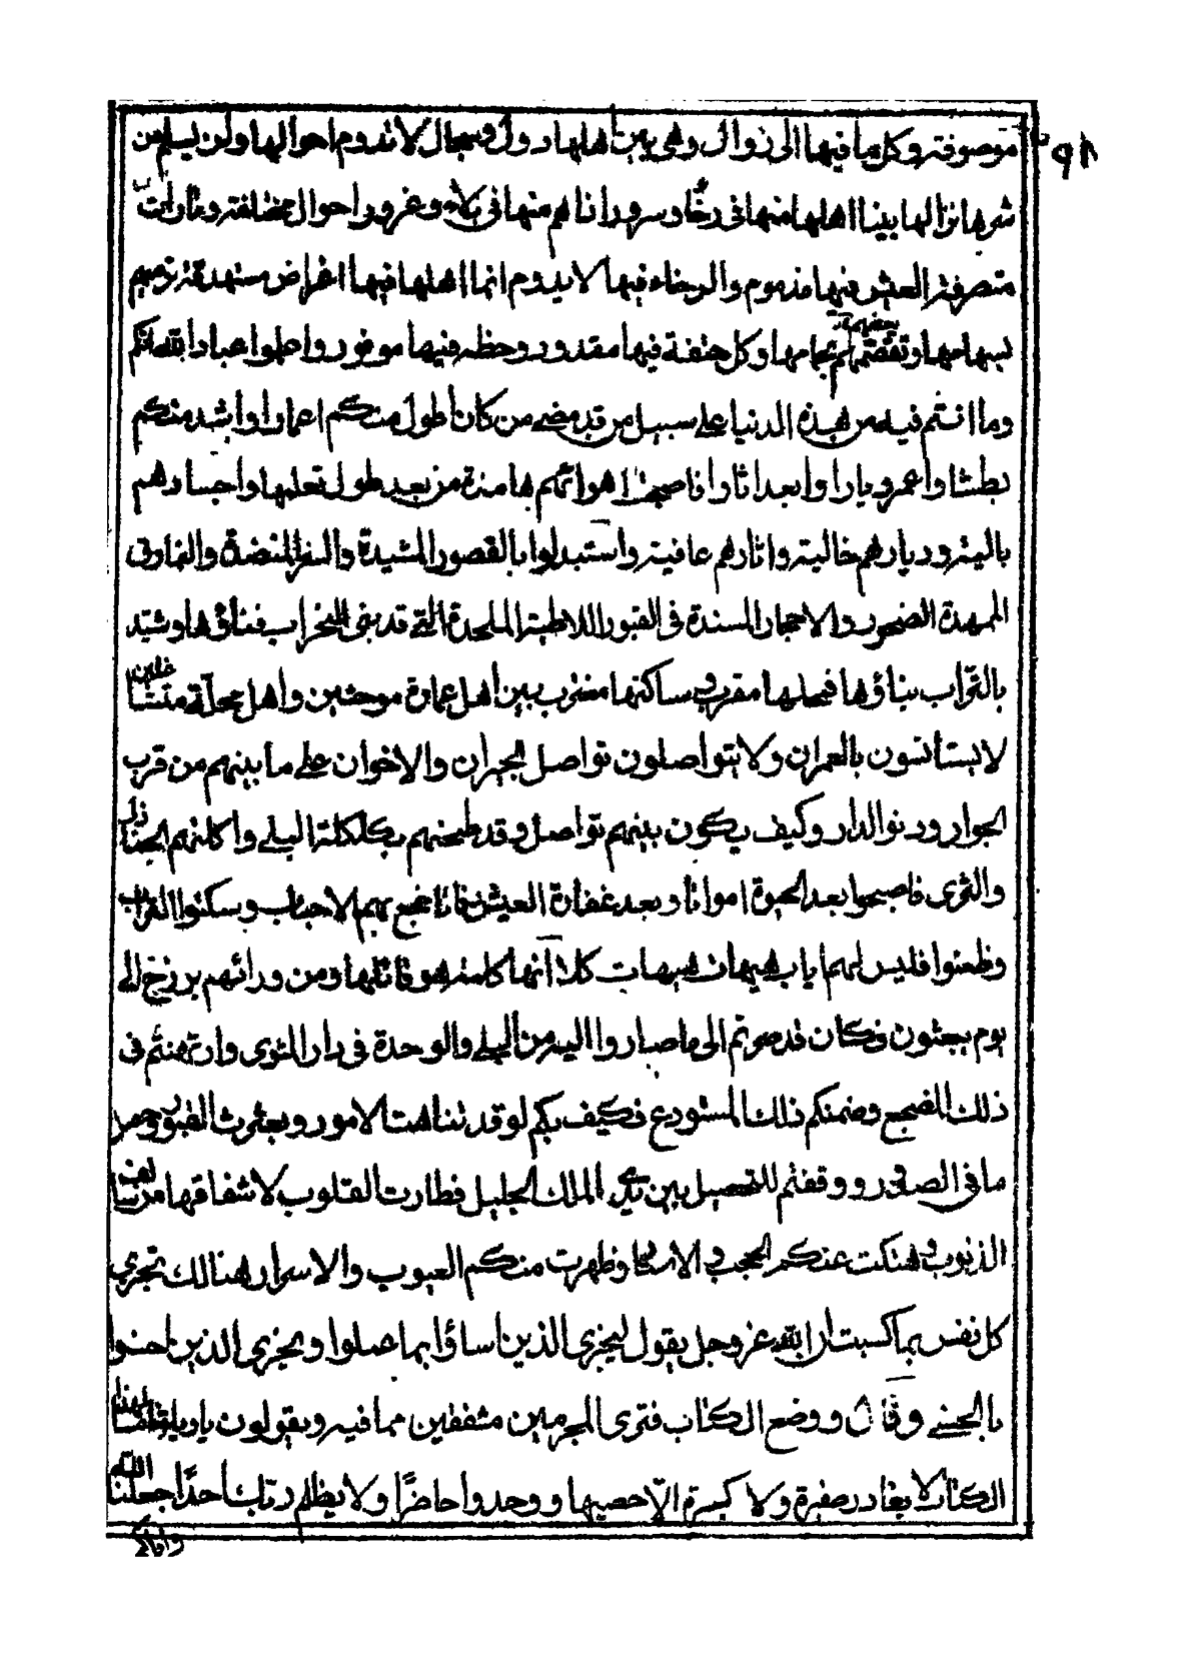 موصوفة وكل ما فيها الى زوال وهى بين اهلها دول وسجال لا تدوم احوالها ولن يسلم من
شرها نزالها بينا اهلها منها فى رخاء وسرور اذا هم منها فى بلاء وغرور احوال مختلفة وتارات
متصرفة العيش فيها مذموم والرخاء فيها لا يدوم انما اهلها فيها اغراض مستهدفة ترميهم
بسهامها وتقصمهم بحمامها وكل حتفه فيها مقدور وحظه فيها موفور واعلموا عباد الله انكم
وما انتم فيه من هذه الدنيا على سبيل من قد مضى من كان اطول منكم اعمارا واشد منكم
بطشا واعمر ديارا وابعد اثارا فاصبحت اهوائهم هامدة من بعد طول تقلبها واجسادهم
بالية وديارهم خالية واثارهم عافية واستبدلوا بالقصور المشيدة والسرر المنضدة والنمارق
الممهدة الصخور والاحجار المسندة فى القبور اللاطئة الملحدة التى قد بنى للخراب فناؤها وشيد
بالتراب بناؤها فمحلها مقرب وساكنها مغترب بين اهل عمارة موحشين واهل محلة متشاغلين
لا يستانسون بالعمران ولا يتواصلون تواصل الجيران والاخوان على ما بينهم من قرب
الجوار ودنو الدار وكيف يكون بينهم تواصل وقد طحنهم بكلكلة البلى واكلتهم الجنادل
والثرى فاصبحوا بعد الحيوة امواتا وبعد غضارة العيش رفاتا فجع بهم الاحباب وسكنوا التراب
وظعنوا فليس لهم اياب هيهات هيهات كلا انها كلمة هو قائلها ومن ورائهم برزخ الى
يوم يبعثون فكان قد صرتم الى ما صاروا اليه من البلى والوحدة فى دار المثوى وارتهنتم فى
ذلك المضجع وضمنكم ذلك المستودع فكيف بكم لو قد تناهت الامور وبعثرت القبور وحصل
ما فى الصدور ووقفتم للتحصيل بين يدى الملك الجليل فطارت القلوب لاشفاقها من سالف
الذنوب وهتكت عنكم الحجب والاستار وظهرت منكم العيوب والاسرار هنالك تجزى
كل نفس بما كسبت ان الله عز وجل يقول ليجزى الذين اساؤا بما عملوا ويجزى الذين احسنوا
بالحسنى وقال ووضع الكتاب فترى المجرمين مشفقين مما فيه ويقولون يا ويلتنا ما لهذا
الكتاب لا يغادر صغيرة ولا كبيرة الا احصيها ووجدوا حاضرا ولا يظلم ربك احدا جعلنا الله
واياكم